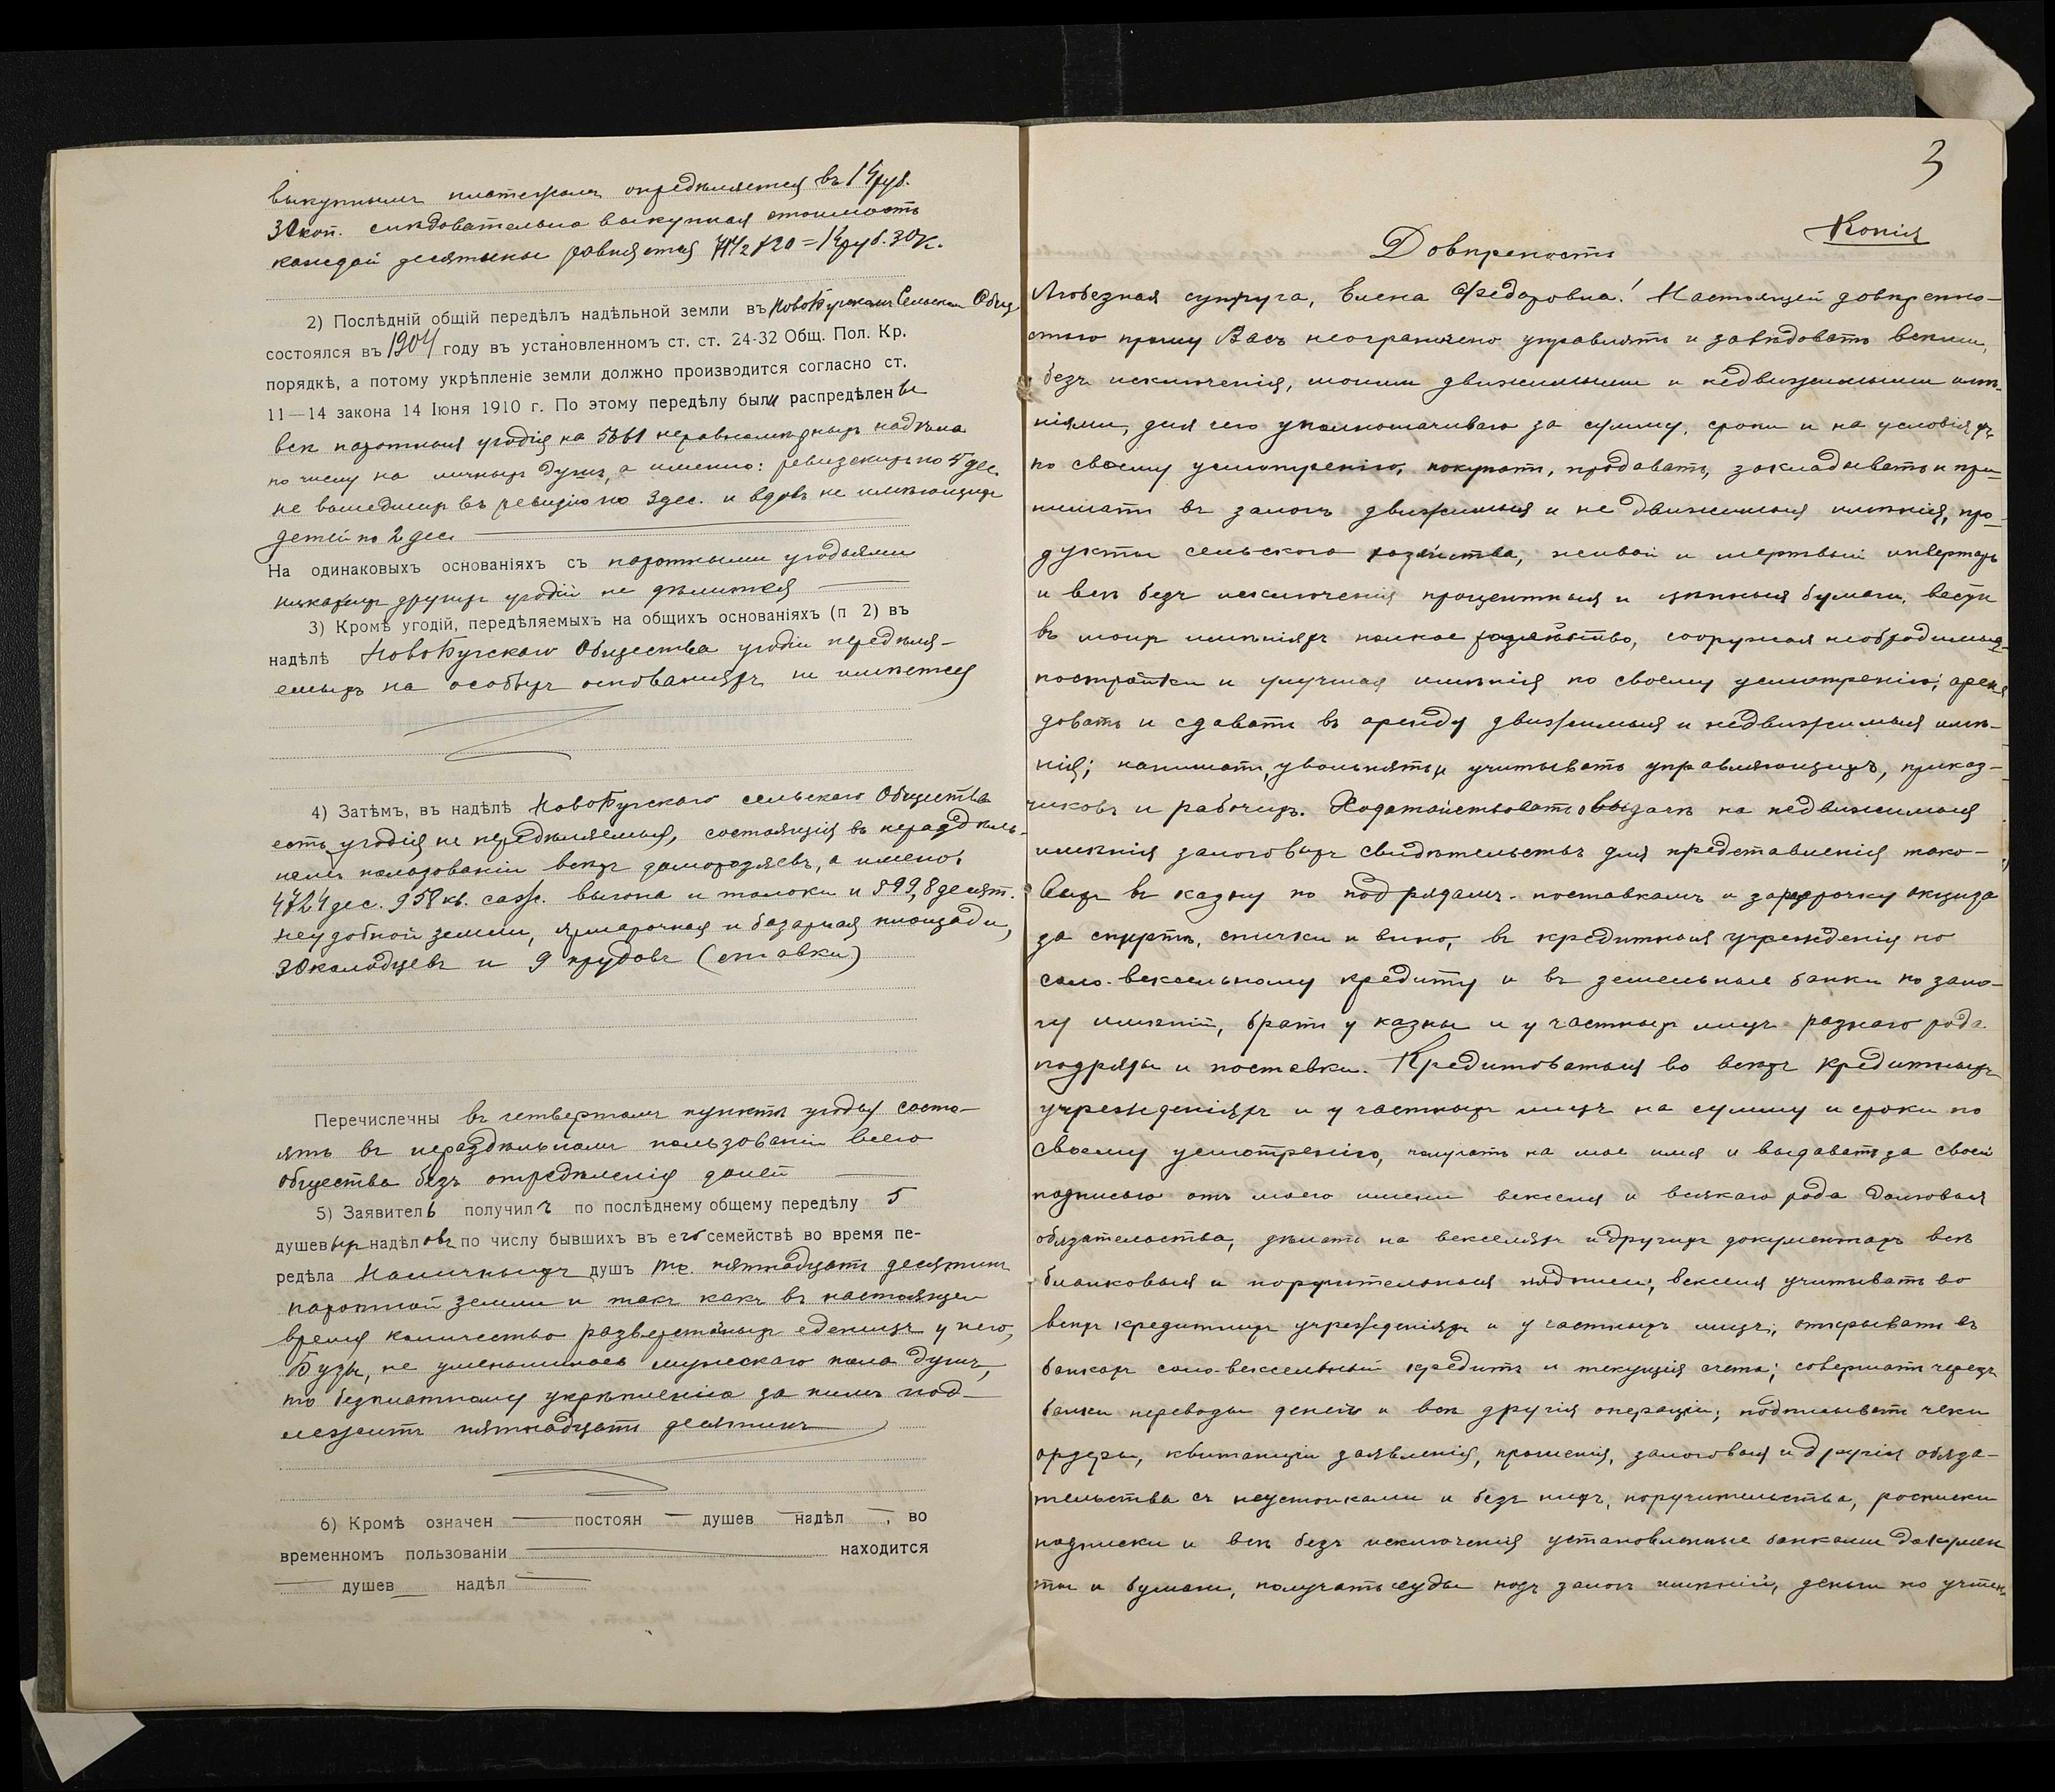 выкупнымъ платежамъ опредѣляется въ 14 руб.
30 коп. слѣдовательно выкупная стоимость
каждой десятины равняется 20 = 14 руб. 30 к.
2) Послѣдній общій передѣлъ надѣльной земли въ НовоБугскомъ Сельскомъ Общ
состоялся въ 1904 году въ установленномъ ст. ст. 24-32 Общ. Пол. Кр.
порядкѣ, а потому укрѣпленіе земли должно производится согласно ст.
11—14 закона 14 Іюня 1910 г. По этому передѣлу были распредѣлены
всѣ пахотныя угодія на неравномѣрныхъ надѣла
по числу на личныхъ душъ, а именно: ревизскихъ по 5 дес.
не вошедшихъ въ ревизію по 3 дес. и вдовъ не имѣющихъ
детей по 2 дес.
На одинаковыхъ основаніяхъ съ пахотными угодьями
никакихъ другихъ угодій не дѣлится
3) Кромѣ угодій, передѣляемыхъ на общихъ основаніяхъ (п 2) въ
надѣлѣ НовоБугскаго Общества угодій передѣля-
емыхъ на особыхъ основаніяхъ не имѣется
4) Затѣмъ, въ надѣлѣ НовоБугскаго сельскаго Общества
есть угодія не передѣляемыя, состоящія въ нераздѣль-
номъ пользованіи всѣхъ домохозяевъ, а имено:
4724 дес. 958 кв. саж. выгона и толоки и 899,8 десят.
неудобной земли, ярмарочная и базарная площади,
30 колодцевъ и 9 прудовъ (ставки)
Перечислечны въ четвертомъ пунктѣ угодья состо-
ятъ въ нераздѣльномъ пользованіи всего
общества безъ опредѣленія долей
5) Заявитель получилъ по послѣднему общему передѣлу 5
душевыхъ надѣловъ по числу бывшихъ въ его семействѣ во время пе-
редѣла Наличныхъ душъ т.е. пятнадцать десятинъ
пахотной земли и такъ какъ въ настоящее
время количество разверстаныхъ еденицъ у него,
Бузы, не уменьшилось мужескаго пола душъ,
то безплатному укрѣпленію за нимъ под-
лежитъ пятнадцать десятинъ
6) Кромѣ означен постоян душев надѣл , во
временномъ пользованіи находится
душев надѣл
3
Копія
Довѣреность
Любезная супруга, Елена Федоровна! Настоящей довѣренно-
стью прошу Васъ неограничено управлять и завѣдовать всѣми,
безъ исключенія, моими движимыми и недвижимыми имѣ-
ніями, для чего уполномачиваю за сумму, сроки и на условіяхъ
по своему усмотренію, покупать, продавать, закладывать и при-
нимать въ залогъ движимыя и не движимыя имѣнія, про-
дукты сельскаго хозяйства, живой и мертвый инвертарь
и всѣ безъ исключенія процентныя и цѣнныя бумаги, вести
въ моихъ имѣніяхъ полное хозяйство, сооружая необходимыя
постройки и улучшая имѣнія по своему усмотренію; арен
довать и сдавать въ аренду движимыя и недвижимыя имѣ-
нія; нанимать, увольнять и учитывать управляющихъ, приказ-
чиковъ и рабочихъ. Ходатайствовать о выдачѣ на недвижимыя
имѣнія залоговыхъ свидѣтельствъ для представленія тако-
выхъ въ казну по подрядамъ - поставкамъ и рассрочку акциза
за спиртъ, спички и вино, въ кредитныя учрежденія по
соло-вексельному кредиту и въ земельные банки по зало-
гу имѣній, брать у казны и у частныхъ лицъ разнаго рода
подряды и поставки. Кредитоваться во всѣхъ кредитныхъ
учрежденіяхъ и у частныхъ лицъ на сумму и сроки по
своему усмотренію, получать на мое имя и выдавать за своей
подписью отъ моего имени векселя и всякаго рода долговыя
обязательства, дѣлать на векселяхъ и другихъ документахъ всѣ
бланковыя и поручительныя надписи; векселя учитывать во
всѣхъ кредитныхъ учрежденіяхъ и у частныхъ лицъ; открывать въ
банкахъ соло-вексельный кредитъ и текущія счета; совершать черезъ
банки переводы денегъ и всѣ другія операціи; подписывать чеки
ордеры, квитанціи заявленія, прошенія, залоговыя и другія обяза-
тельства съ неустойками и безъ нихъ, поручительства, росписки
подписки и всѣ безъ исключенія установленные банками докумен
ты и бумаги, получать ссуды подъ залогъ имѣній, деньги по